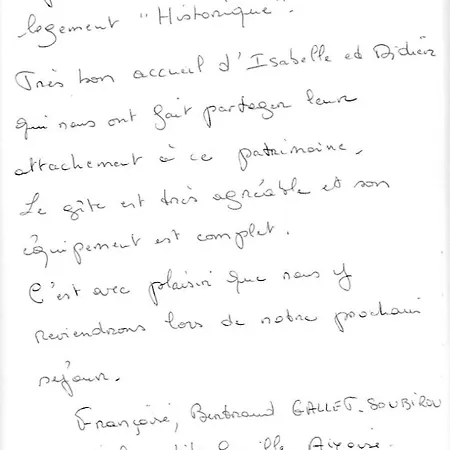 logement "Historique".
Très bon accueil d'Isabelle et Didier
qui nous ont fait partager leur
attachement à ce patrimoine.
Le gîte est très agréable et son
équipement est complet.
C'est avec plaisir que nous y
reviendrons lors de notre prochain
séjour.
Françoise, Bertrand GALLET-SOUBIROU